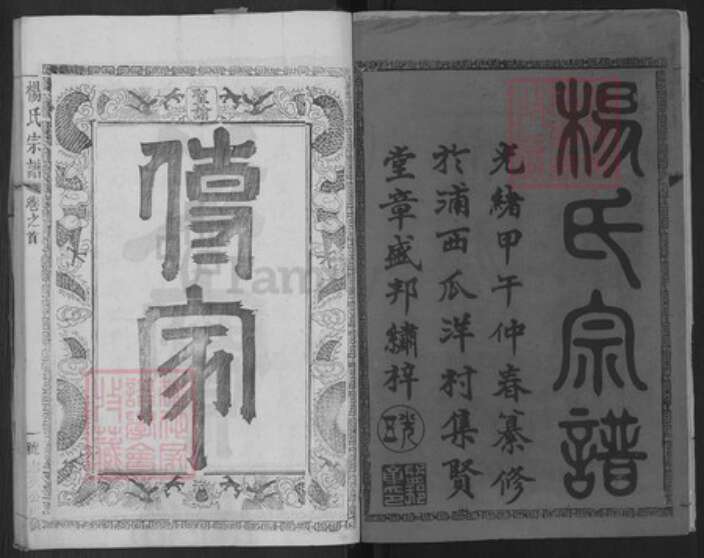 楊氏宗譜
光緒甲午仲春纂修
於浦西瓜洋村集賢
堂章盛邦繡梓
聖諭
傳家
楊氏宗譜
卷之首